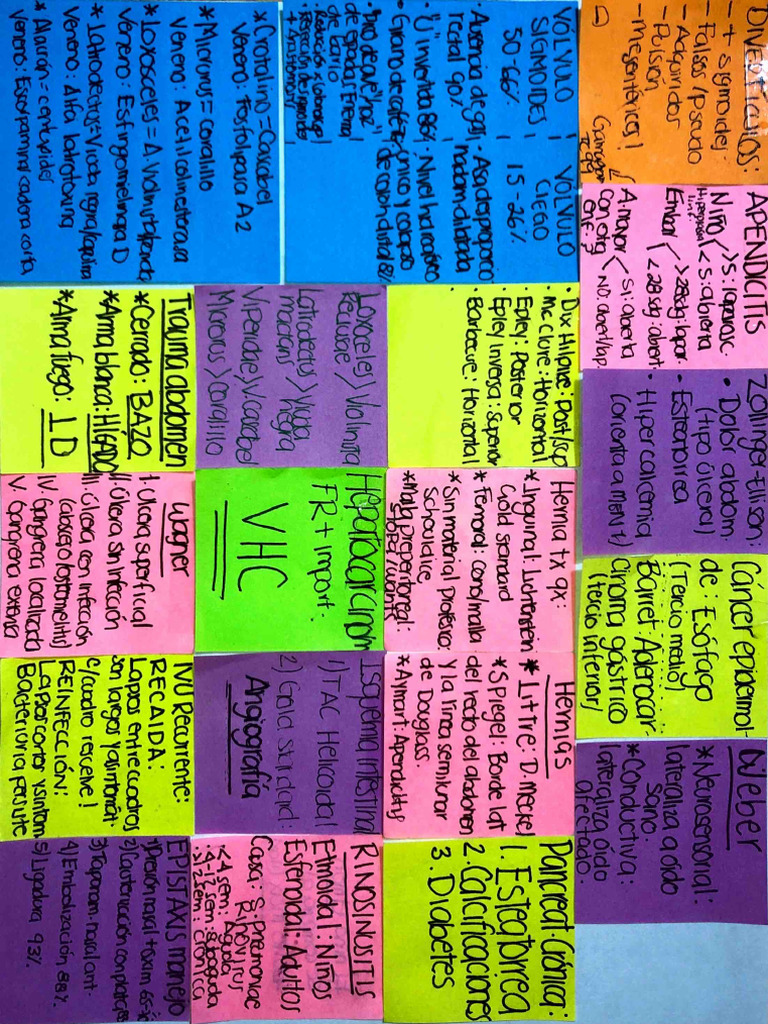 Divertículos:
- + sigmoides
- Falsos/pseudo
- Adquiridos
- Pulsión
- Mesentéricos!
APENDICITIS
Niño > S: laparosc.
< S: abierta
Embar > 28sdg: lapar.
< 28sdg: abiert
A. mayor < Si: abierta
Con otra enf.? NO: abiert/lap.
Zollinger-Ellison:
• Dolor abdom.
(tipo úlcera)
• Esteatorrea
• Hipercalcemia
(orienta a MEN 1)
Cáncer epidermoi-
de: Esófago
(Tercio medio)
Barret: Adenocar-
cinoma gástrico
(tercio inferior)
Weber
*Neurosensorial:
lateraliza a oído
sano
*Conductiva:
lateraliza oído
afectado.
VÓLVULO SIGMOIDES | VÓLVULO CIEGO
50-66% | 15-26%
• Ausencia de gas rectal 90%
• "U" invertida 86%
• Grano de café
• Pico de ave "haz de espadas" Enema de bario
• Asa delgada prominente
• Nivel hidroaéreo único y colapso de colon distal 82%
*Crotalino = Cascabel
Veneno: Fosfolipasa A2
*Micrurus = coralillo
Veneno: Acetilcolinesterasa
*Loxosceles = A. Violinista/parda
Veneno: Esfingomielinasa D
*Latrodectus = Viuda negra/capulina
Veneno: Alfa latrotoxina
*Alacrán = centruroides
• Dix Hallpike: Post/sup
• Mc Clure: Horizontal
• Epley: Posterior
• Epley inversa: superior
• Barbacue: Horizontal
Loxoceles > Violinista
Reclusae
Latrodectus > Viuda
mactans negra
Viperidae > V. cascabel
Micrurus > Coralillo
Trauma abdomen
*Cerrado: BAZO
*Arma blanca: HÍGADO
*Arma fuego: ID
Hernia tx qx:
*Inguinal: Lichtenstein
Gold standard
*Femoral: cono/malla
*Sin material protésico:
schouldice
*Malla preperitoneal:
Hepatocarcinoma
FR + import:
VHC
Wagner
I. Ulcera superficial
II. Úlcera sin infección
III. Úlcera con infección
(absceso/osteomelitis)
IV. Gangrena localizada
V. Gangrena extensa
Hernias
*Litre: D. Meckel
*Spiegel: Borde lat
del recto del abdomen
y la línea semilunar
de Douglas.
*Amyant: Apendicitis
Isquemia intestinal
1) TAC Helicoidal
2) Gold standard:
Angiografía
IVU Recurrente:
RECAÍDA:
Lapsos entre cuadros
son largos y asintomát.
c/cuadro resuelve!
REINFECCIÓN:
Lapsos cortos y síntom.
Bacteriuria persiste
Pancreat. Crónica:
1. Esteatorrea
2. Calcificaciones
3. Diabetes
RINOSINUSITIS
Etmoidal: Niños
Esfenoidal: Adultos
Causa: S. Pneumoniae
Rinovirus
<4 sem: Aguda
4-12 sem: subaguda
>12 sem: crónica
EPISTAXIS manejo
1) Presión nasal + oxim
2) Cauterización con plata
3) Taponam. nasal ant.
4) Embolización 88%
5) Ligadura 93%